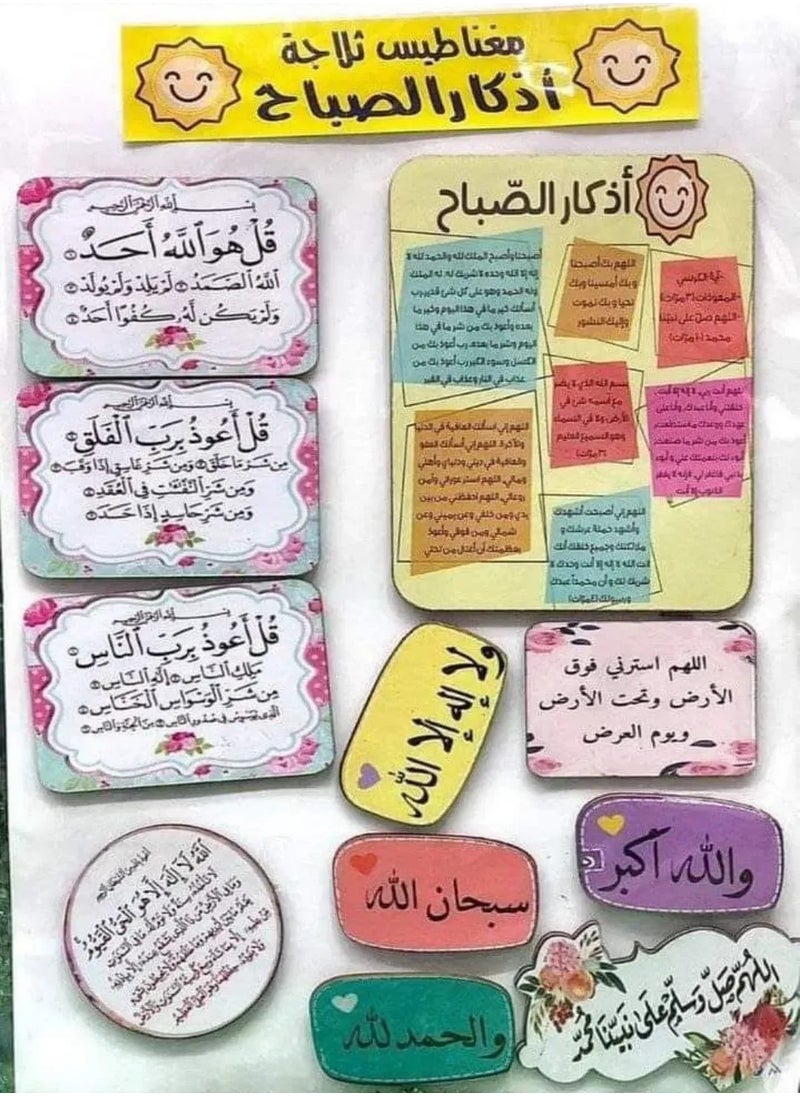 مغناطيس ثلاجة
أذكار الصباح
بسم الله الرحمن الرحيم
قُلْ هُوَ ٱللَّهُ أَحَدٌ ①
ٱللَّهُ ٱلصَّمَدُ ② لَمْ يَلِدْ وَلَمْ يُولَدْ ③
وَلَمْ يَكُن لَّهُۥ كُفُوًا أَحَدٌ ④
بسم الله الرحمن الرحيم
قُلْ أَعُوذُ بِرَبِّ ٱلْفَلَقِ ①
مِن شَرِّ مَا خَلَقَ ② وَمِن شَرِّ غَاسِقٍ إِذَا وَقَبَ ③
وَمِن شَرِّ ٱلنَّفَّٰثَٰتِ فِى ٱلْعُقَدِ ④
وَمِن شَرِّ حَاسِدٍ إِذَا حَسَدَ ⑤
بسم الله الرحمن الرحيم
قُلْ أَعُوذُ بِرَبِّ ٱلنَّاسِ ①
مَلِكِ ٱلنَّاسِ ② إِلَٰهِ ٱلنَّاسِ ③
مِن شَرِّ ٱلْوَسْوَاسِ ٱلْخَنَّاسِ ④
ٱلَّذِى يُوَسْوِسُ فِى صُدُورِ ٱلنَّاسِ ⑤ مِنَ ٱلْجِنَّةِ وَٱلنَّاسِ ⑥
أذكار الصّباح
-آية الكرسي
-المعوذات (٣ مرّات)
-اللهم صلّ على نبيّنا
محمد (١٠ مرّات)
اللهم بك أصبحنا
وبك أمسينا وبك
نحيا وبك نموت
وإليك النشور
أصبحنا وأصبح الملك لله والحمد لله لا
إله إلا الله وحده لا شريك له، له الملك
وله الحمد وهو على كل شئ قدير رب
أسألك خير ما في هذا اليوم وخير ما
بعده وأعوذ بك من شر ما في هذا
اليوم وشر ما بعده، رب أعوذ بك من
الكسل وسوء الكبر رب أعوذ بك من
عذاب في النار وعذاب في القبر
بسم الله الذي لا يضر
مع اسمه شئ في
الأرض ولا في السماء
وهو السميع العليم
(٣ مرّات)
اللهم أنت ربي، لا إله إلا أنت
خلقتني وأنا عبدك، وأنا على
عهدك ووعدك ما استطعت،
أعوذ بك من شر ما صنعت،
أبوء لك بنعمتك علي و أبوء
بذنبي فاغفر لي، فإنه لا يغفر
الذنوب إلا أنت
اللهم إني أسألك العافية في الدنيا
والآخرة، اللهم إني أسألك العفو
والعافية في ديني ودنياي وأهلي
ومالي، اللهم استر عوراتي وآمن
روعاتي، اللهم احفظني من بين
يدي ومن خلفي وعن يميني وعن
شمالي ومن فوقي وأعوذ
بعظمتك أن أغتال من تحتي
اللهم إني أصبحت أشهدك
وأشهد حملة عرشك و
ملائكتك وجميع خلقك أنك
أنت الله لا إله إلا أنت وحدك لا
شريك لك و أن محمداً عبدك
ورسولك (٤ مرّات)
ولا إله إلا الله
اللهم استرني فوق
الأرض وتحت الأرض
ويوم العرض
والله أكبر
سبحان الله
والحمد لله
اللَّهُمَّ صَلِّ وَسَلِّمْ عَلَىٰ نَبِيِّنَا مُحَمَّدٍ
ٱللَّهُ لَآ إِلَٰهَ إِلَّا هُوَ ٱلْحَىُّ ٱلْقَيُّومُ